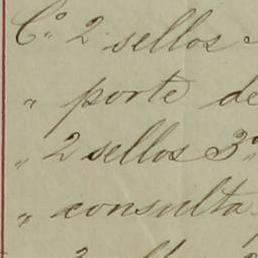 C.º 2 sellos
" porte de
" 2 sellos 3º
" consulta